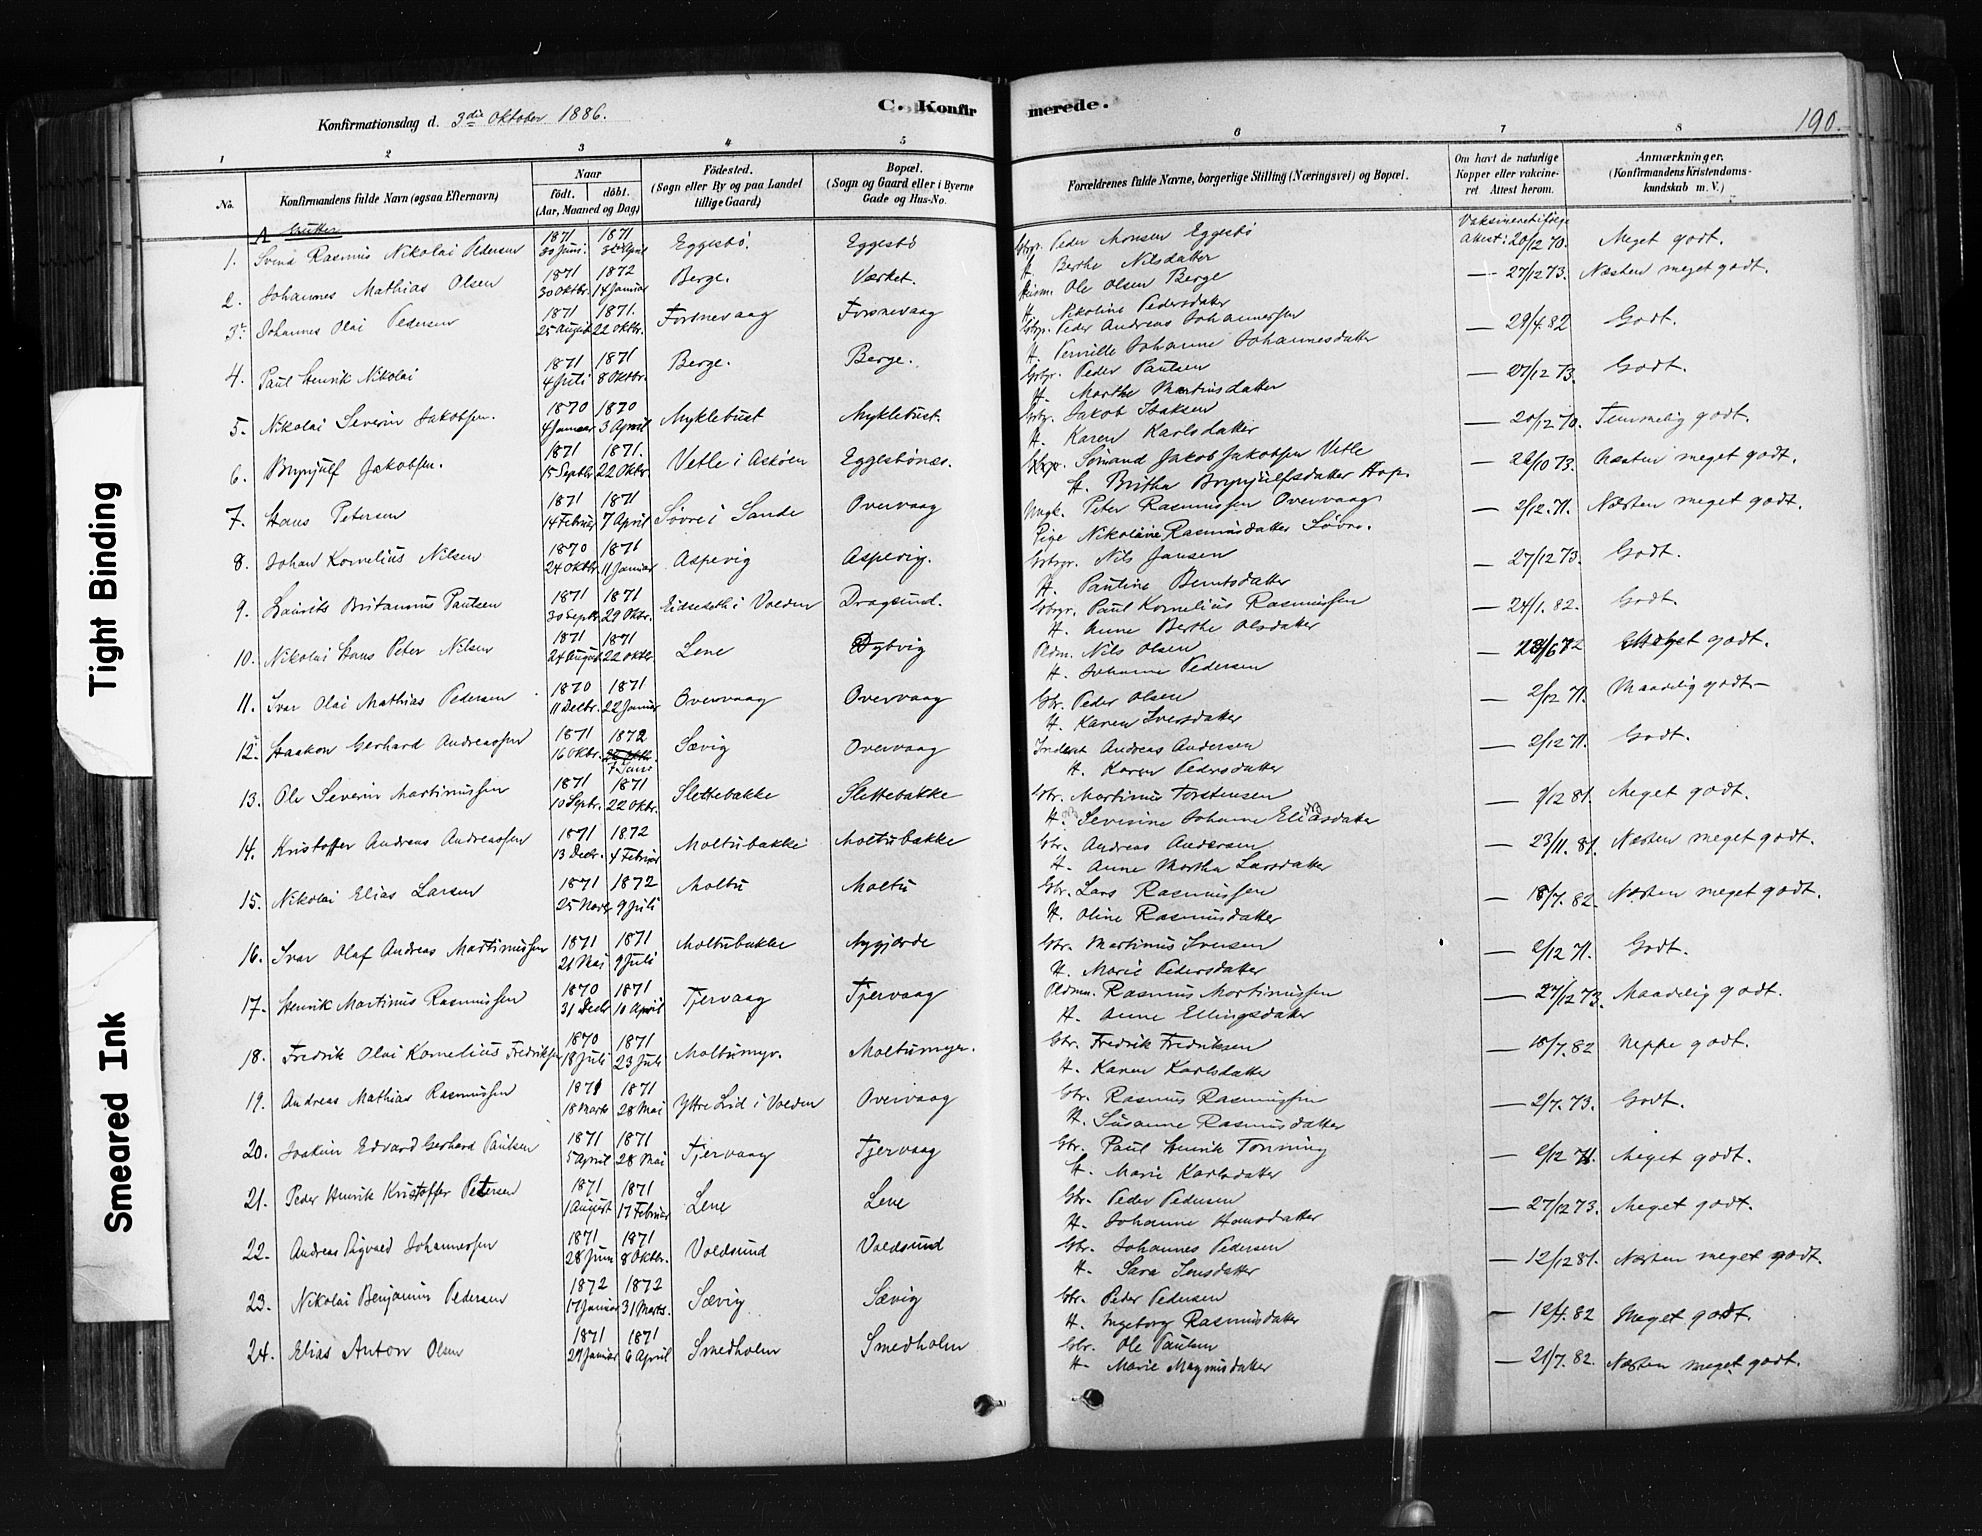 C. Konfirmerede.
190.
Konfirmationsdag d. 3die Oktober 1886.
1 2 3 4 5 6 7 8
No.
Konfirmandens fulde Navn (ogsaa Efternavn)
Naar
födt. döbt.
(Aar, Maaned og Dag)
Födested.
(Sogn eller By og paa Landet
tillige Gaard)
Bopæl.
(Sogn og Gaard eller i Byerne
Gade og Hus-No.
Forældrenes fulde Navne, borgerlige Stilling (Næringsvei) og Bopæl.
Om havt de naturlige
Kopper eller vakcine-
ret Attest herom.
Anmærkninger.
(Konfirmandens Kristendoms-
kundskab m. V.)
A Gutter
Vaksineret ifölge
1. Svend Rasmus Nikolai Pedersen 1871 30 Juni 1871 Eggesbö. Eggesbö Gbr. Peder Monsen Eggesbö H. Berthe Nilsdatter attest: 20/12 70. Meget godt.
2. Johannes Mathias Olsen 1871 30 Oktbr. 1872 14 Januar Berge. Værket. Husm. Ole Olsen Berge H. Nikoline Pedersdatter — 27/12 73. Næsten meget godt.
3. Johannes Olai Pedersen 1871 25 August 1871. 22 Oktbr. Torsnevaag Torsnevaag Gbr. Peder Andreas Johannessen H. Pernille Johanne Johannesdatter — 29/4. 82 Godt.
4. Paul Henrik Nikolai 1871 4 Juli 1871 8 Oktbr. Berge. Berge. Gbr. Peder Paulsen H. Marthe Martinusdatter — 27/12 73. Godt.
5. Nikolai Severin Jakobsen. 1870 4 Januar 1870 3 April Myklebust Myklebust. Gbr. Jakob Isaksen H. Karen Karlsdatter — 20/12 70. Temmelig godt.
6. Brynjulf Jakobsen. 1871 15 Septbr 1871. 22 Oktbr. Vetle i Asköen Eggesbönes. Sömand Jakob Jakobsen Vetle H. Britha Brynjulfsdatter Hop. — 26/10 73. Næsten meget godt.
7. Hans Petersen 1871 14 Februar 1871 7 April Sövre i Sande Overvaag Ungk. Peter Rasmussen Overvaag Pige Nikolaine Rasmusdatter Sövre. — 2/12. 71. Næsten meget godt.
8. Johan Kornelius Nilsen 1870 24 Oktbr. 1871 11 Januar Aspevig Aspevig. Gbr. Nils Jansen H. Pauline Berntsdatter — 27/12 73. Godt.
9. Laurits Britanius Paulsen 1871 30 Septbr 1871 29 Oktbr. Eidsedeth i Volden Dragsund. Gbr. Paul Kornelius Rasmussen H. Anne Berthe Olsdatter — 24/1. 82. Godt.
10. Nikolai Hans Peter Nilsen 1871 24 August 1871 22 Oktbr. Lene Dybvig Pldm. Nils Olsen H. Johanne Pedersen — 28/6 72 Meget godt.
11. Ivar Olai Mathias Pedersen 1870 11 Decbr. 1871 22 Januar Overvaag Overvaag Gbr. Peder Olsen H. Karen Iversdatter — 2/12 71. Maadelig godt.
12. Haakon Gerhard Andreassen 1871 16 Oktbr. 1872 7 Janr Sævig Overvaag Inderst Andreas Andersen H. Karen Pedersdatter — 2/12 71. Godt.
13. Ole Severin Martinussen 1871 10 Septbr. 1871 22 Oktbr. Slettebakke Slettebakke Gbr. Martinus Torstensen H. Severine Johanne Eliasdatter — 1/12 81. Meget godt.
14. Kristoffer Andreas Andreassen 1871 13 Decbr. 1872 4 Februar Moltubakke Moltubakke Gbr. Andreas Andersen H. Anne Martha Larsdatter — 23/11. 81. Næsten meget godt.
15. Nikolai Elias Larsen 1871 25 Novbr 1872 9 Juli Moltu Moltu Gbr. Lars Rasmussen H. Oline Rasmusdatter — 18/7. 82. Næsten meget godt.
16. Ivar Olaf Andreas Martinussen 1871 21 Mai 1871 9 Juli Moltubakke Nygjerde Gbr. Martinus Iversen H. Marie Pedersdatter — 2/12 71. Godt.
17. Henrik Martinus Rasmussen 1870 31 Decbr 1871 10 April Tjervaag Tjervaag Pldmn. Rasmus Martinussen H. Anne Ellingsdatter — 27/12 73. Maadelig godt.
18. Fredrik Olai Kornelius Fredriksen 1870 18 Juli 1871 23 Juli Moltumyr. Moltumyr. Gbr. Fredrik Fredriksen H. Karen Karlsdatter — 18/7. 82 Neppe godt.
19. Andreas Mathias Rasmussen 1871 18 Marts 1871 28 Mai Yttre Lid i Volden Overvaag Gbr. Rasmus Rasmussen H. Susanne Rasmusdatter — 2/7. 73. Godt.
20. Joakim Edvard Gerhard Paulsen 1871 5 April 1871 28 Mai Tjervaag Tjervaag Gbr. Paul Henrik Torning H. Marie Karlsdatter — 2/12 71. Meget godt.
21. Peder Henrik Kristoffer Petersen 1871 1 August 1871 17 Februar Lene Lene Gbr. Peder Pedersen H. Johanne Hansdatter — 27/12 73. Meget godt.
22. Andreas Sigvald Johannessen 1871 28 Juni 1871 8 Oktbr. Voldsund Voldsund Gbr. Johannes Pedersen H. Sara Jensdatter — 12/12 81. Næsten meget godt.
23. Nikolai Benjamin Pedersen 1872 17 Januar 1872 31 Marts. Sævig Sævig Gbr. Peder Pedersen H. Ingeborg Rasmusdatter — 12/4. 82 Meget godt.
24. Elias Anton Olsen 1871 27 Januar 1871 6 April Smedholm Smedholm Gbr. Ole Paulsen H. Marie Magnusdatter — 21/7. 82. Næsten meget godt.
Tight Binding
Smeared Ink